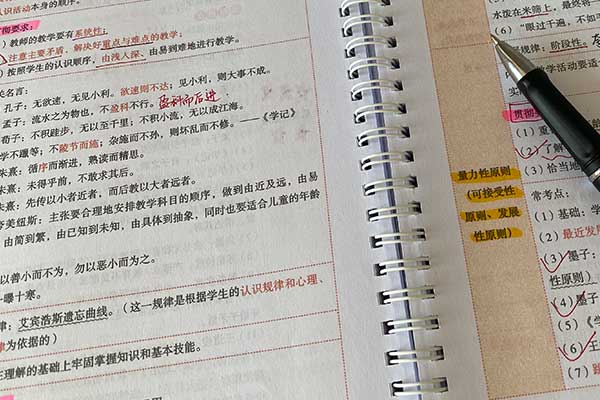 认识活动本身的顺序。
贯彻要求：
）教师的教学要有系统性；
注意主要矛盾，解决好重点与难点的教学；
）按照学生的认识顺序，由浅入深、由易到难地进行教学。
关名言：
孔子：无欲速，无见小利。欲速则不达；见小利，则大事不成。
孟子：流水之为物也，不盈科不行。盈科而后进
荀子：不积跬步，无以至千里；不积小流，无以成江海。
学不躐等；不陵节而施；杂施而不孙，则坏乱而不修。——《学记》
朱熹：循序而渐进，熟读而精思。
朱熹：未得乎前，不敢求其后。
朱熹：先传以小者近者，而后教以大者远者。
夸美纽斯：主张要合理地安排教学科目的顺序，做到由近及远，由易
由简到繁，由已知到未知，由具体到抽象，同时也要适合儿童的年龄
以善小而不为，勿以恶小而为之。
一曝十寒。
律；艾宾浩斯遗忘曲线。（这一规律是根据学生的认识规律和心理、
律为依据的）
在理解的基础上牢固掌握知识和基本技能。
量力性原则
（可接受性
原则、发展
性原则）
水泼在米筛上，最终将
（6）“眼过千遍，不如手
规律：阶段性。
教学活动要适
贯彻
（1）重
（2）了解
（3）恰当地
常考点：
（1）基础：学
（2）最近发展
（3）墨子：
性原则）
（4）墨
（5）《学
（6）王
（7）跳